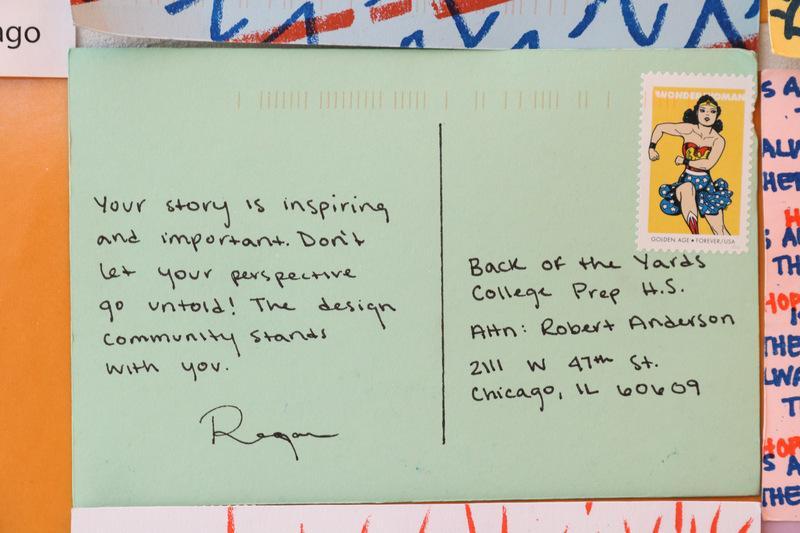 ago
Your story is inspiring
and important. Don't
let your perspective
go untold! The design
community stands
with you.
Regan
WONDER WOMAN
GOLDEN AGE • FOREVER/USA
Back of the Yards
College Prep H.S.
Attn: Robert Anderson
2111 W 47th St.
Chicago, IL 60609
S A
ALW
HE
TH
HOP
THE
LWA
T
HOP
S A
THE